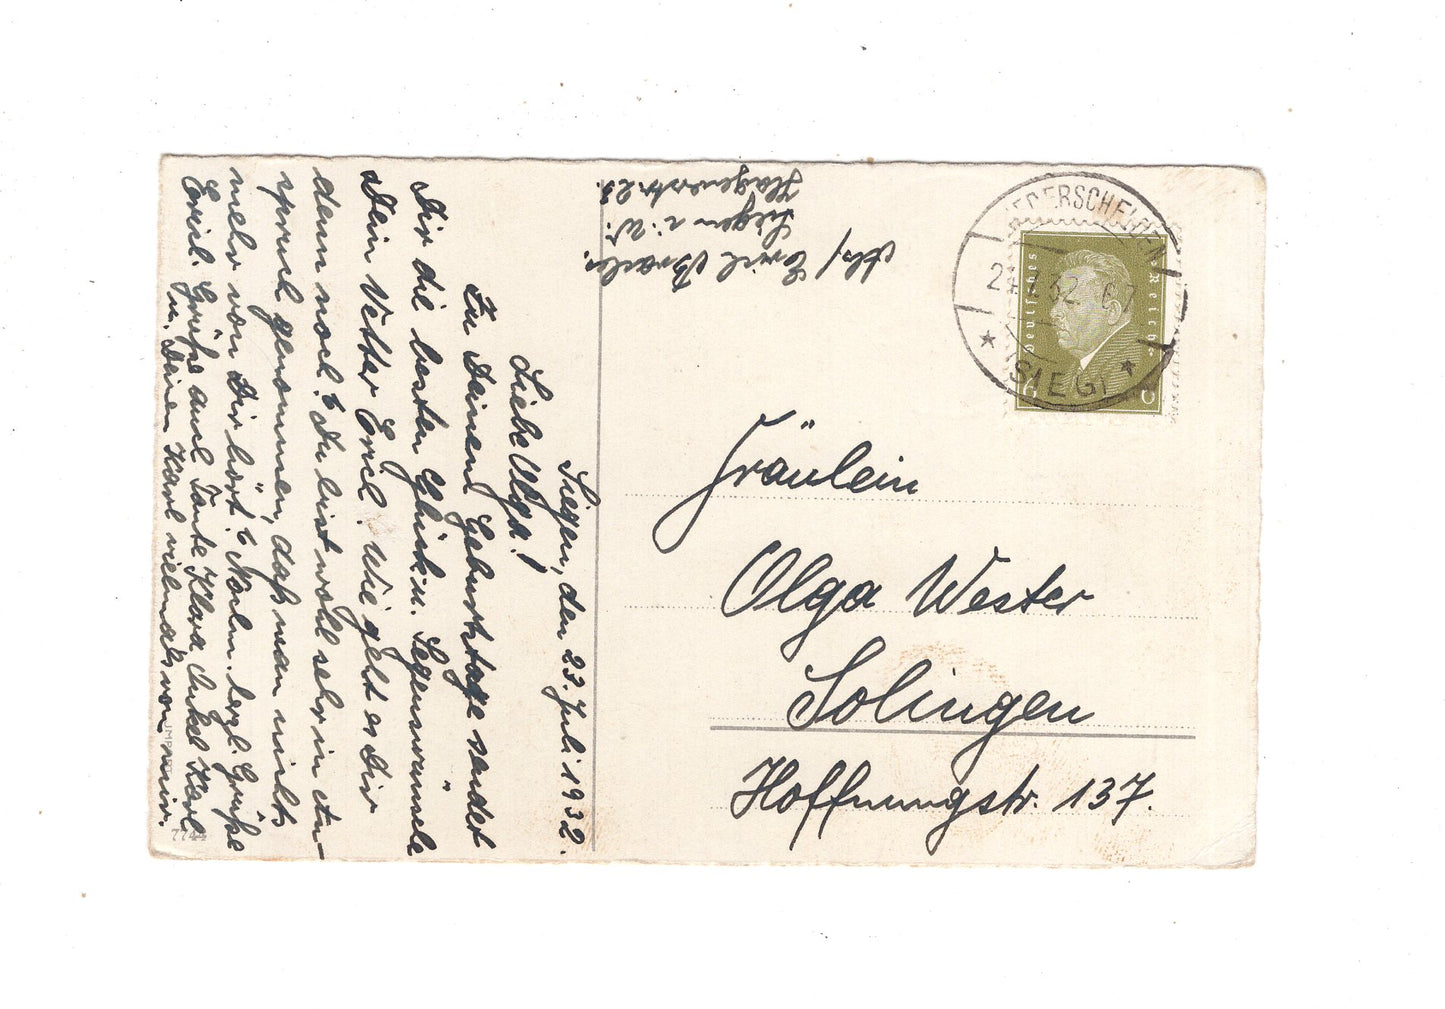 Siegen, den 23. Juli 1932.
Liebe Olga!
Zu Deinem Geburtstage sendet
Dir die besten Glück- u. Segenswünsche
Dein Vetter Erich. Wie geht es Dir
denn noch? Du bist wohl sehr in An-
spruch genommen, daß man nichts
mehr von Dir hört? Nochm. herzl. Grüße
Erich. Grüße auch Tante Klara Onkel Karl
u. Deinen Karl vielmals von mir.
Abs/ Erich
Siegen i. W.
Hagenerstr. 23.
NIEDERSCHELDEN
32
(SIEG)
Deutsches Reich
6
Fräulein
Olga Wester
Solingen
Hoffnungstr. 137.
IMPORT
7744